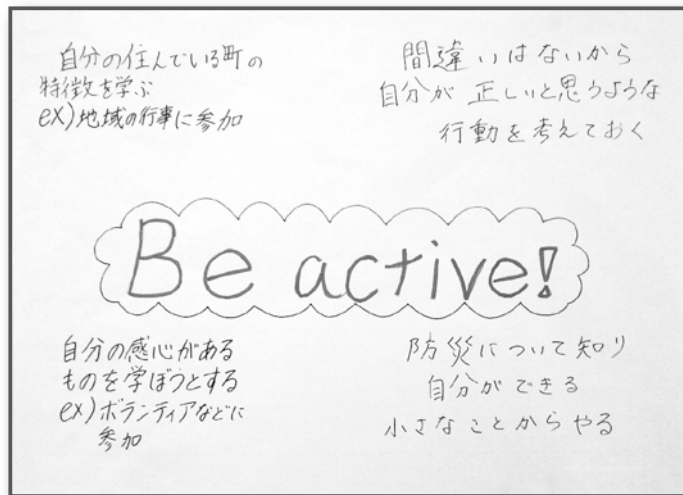 自分の住んでいる町の
特徴を学ぶ
ex)地域の行事に参加
間違いはないから
自分が正しいと思うような
行動を考えておく
Be active!
自分の感心がある
ものを学ぼうとする
ex)ボランティアなどに
参加
防災について知り
自分ができる
小さなことからやる